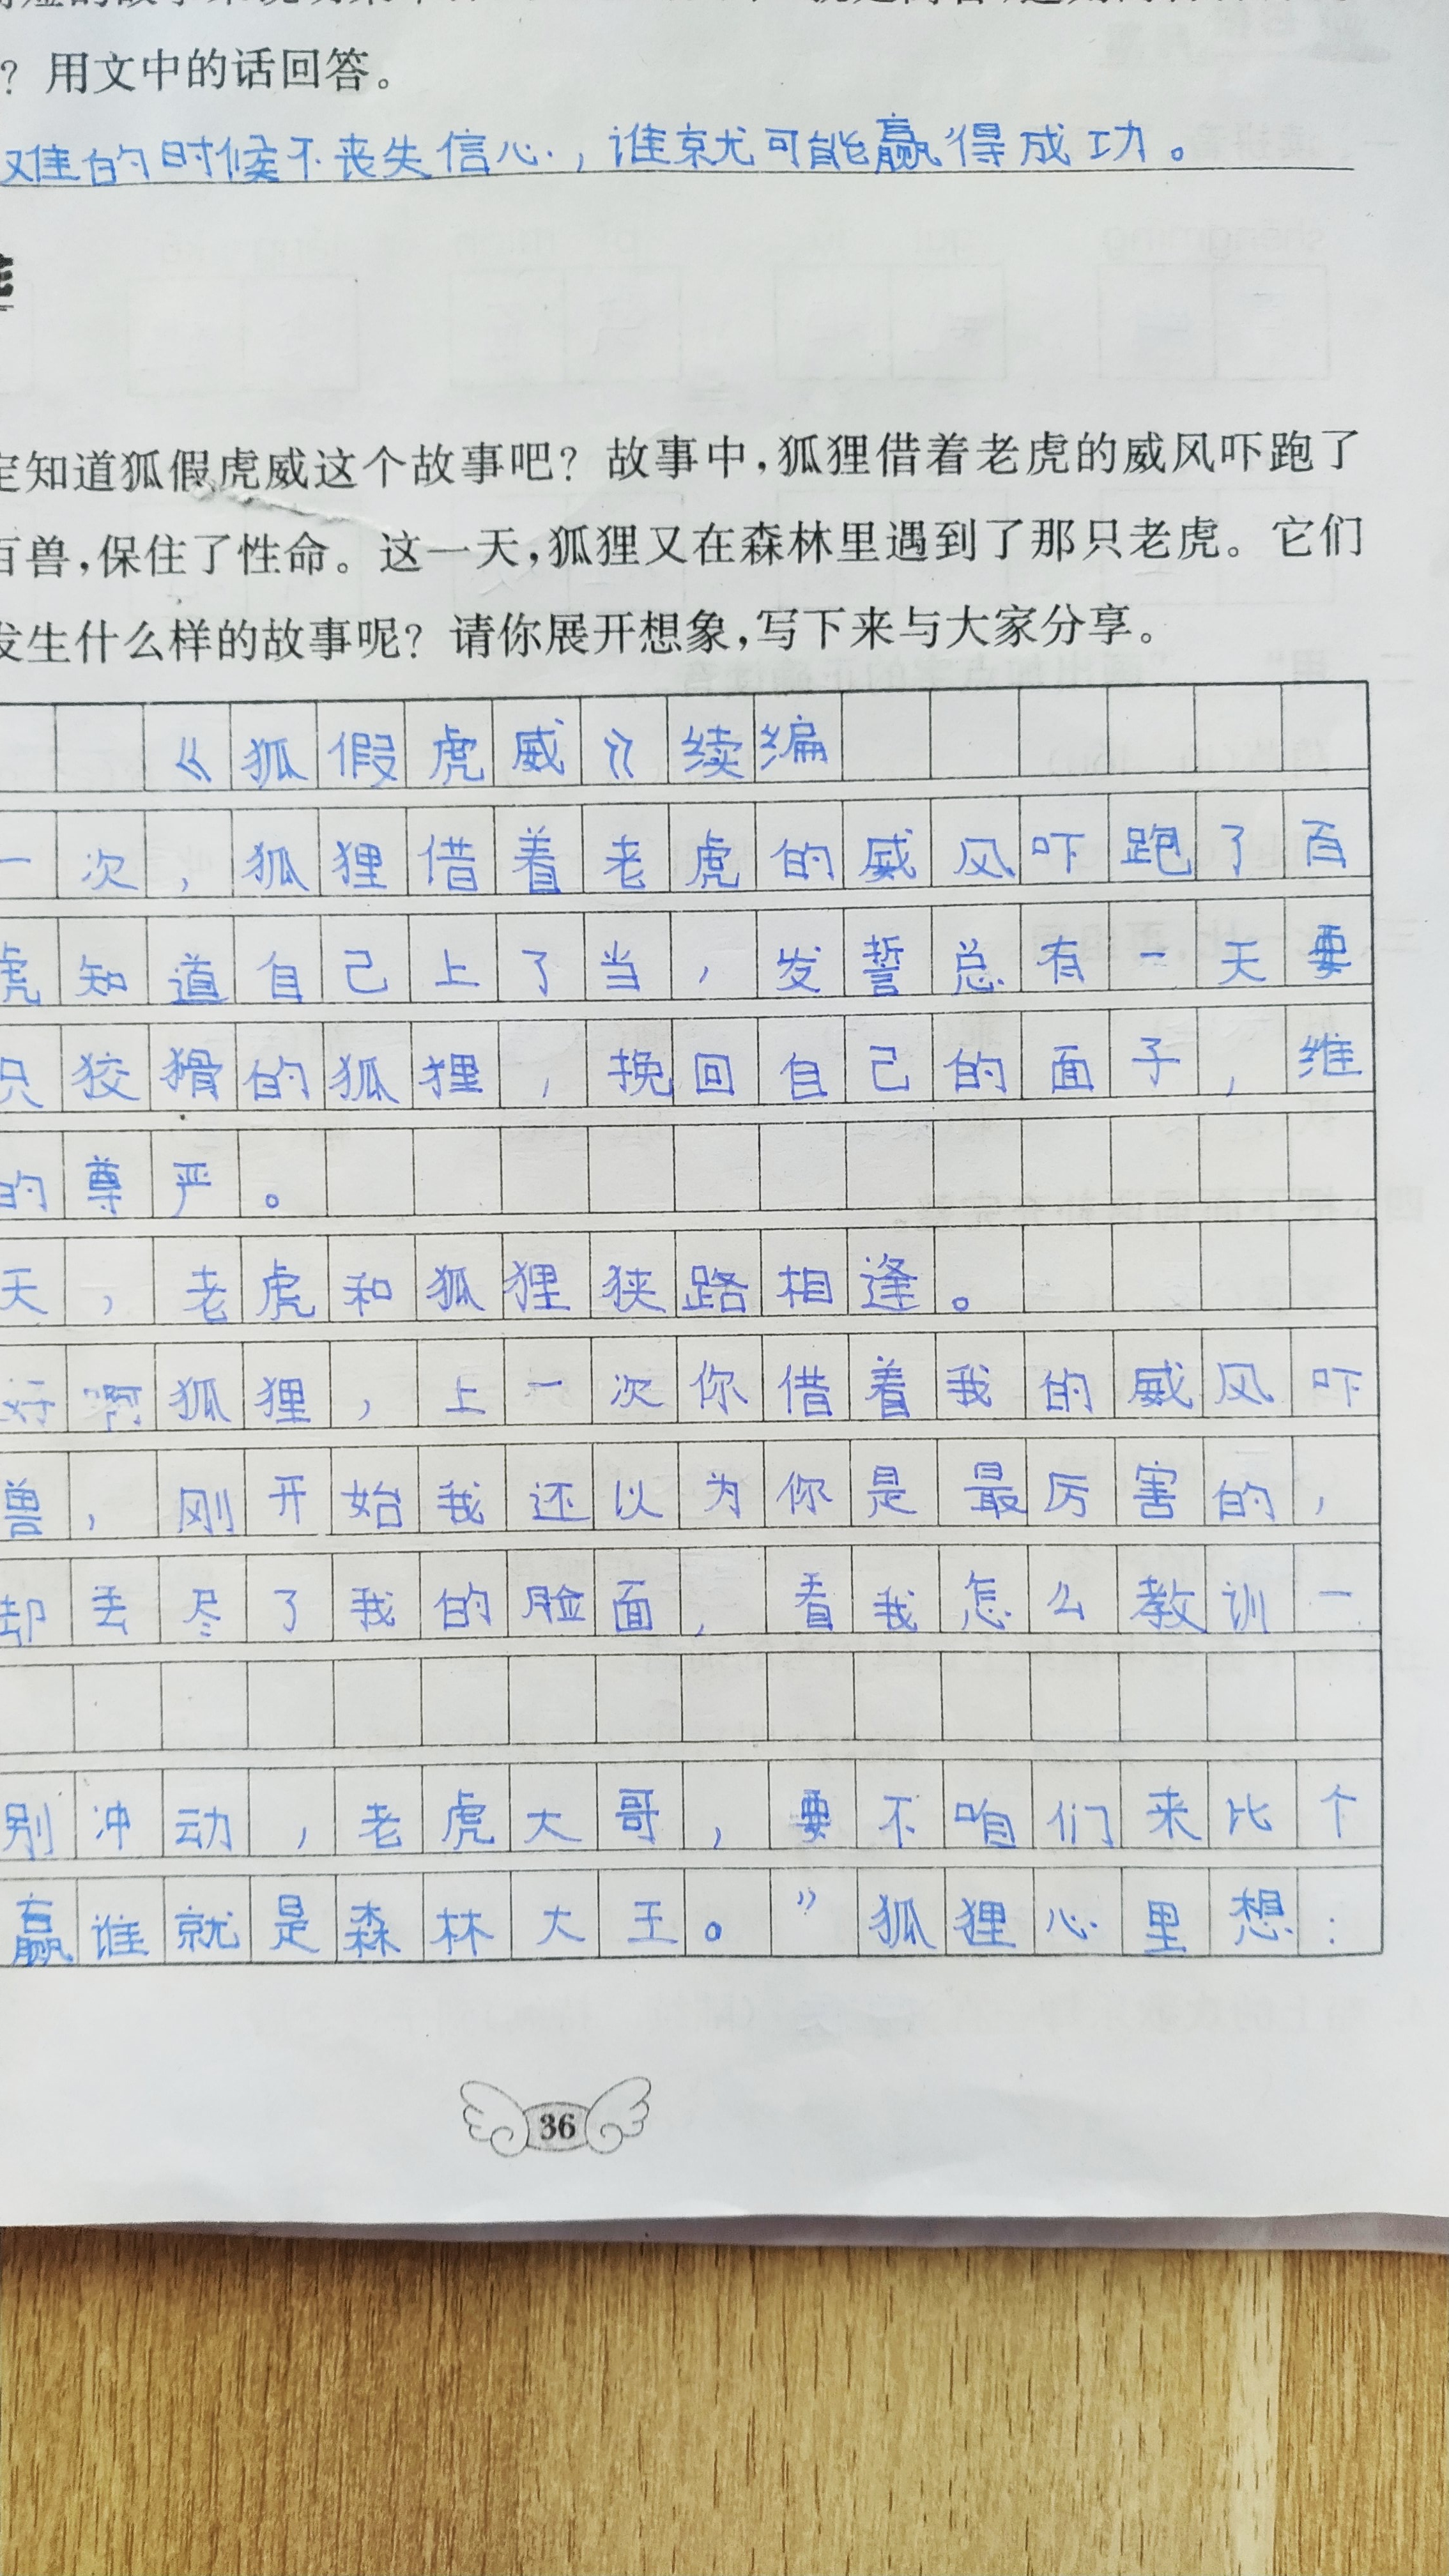 ？用文中的话回答。
难的时候不丧失信心，谁就可能赢得成功。
定知道狐假虎威这个故事吧？故事中，狐狸借着老虎的威风吓跑了
百兽，保住了性命。这一天，狐狸又在森林里遇到了那只老虎。它们
发生什么样的故事呢？请你展开想象，写下来与大家分享。
《狐假虎威》续编
一次，狐狸借着老虎的威风吓跑了百
虎知道自己上了当，发誓总有一天要
只狡猾的狐狸，挽回自己的面子，维
的尊严。
天，老虎和狐狸狭路相逢。
好啊狐狸，上一次你借着我的威风吓
兽，刚开始我还以为你是最厉害的，
却丢尽了我的脸面，看我怎么教训一
别冲动，老虎大哥，要不咱们来比个
赢谁就是森林大王。”狐狸心里想：
36